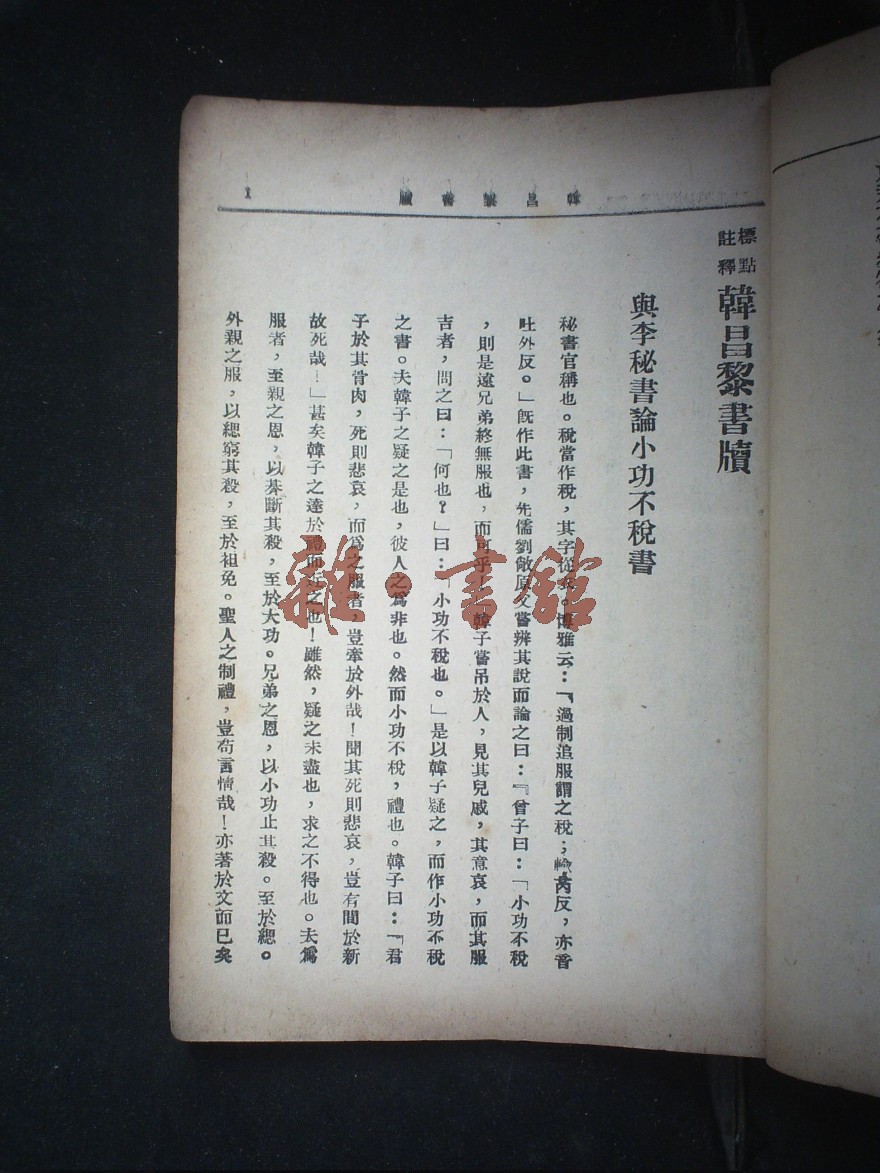 韓昌黎書牘
1
標點
註釋
韓昌黎書牘
與李秘書論小功不稅書
秘書官稱也。稅當作稅，其字從衣。博雅云：「過制追服謂之稅；輸芮反，亦音
吐外反。」旣作此書，先儒劉敞原父嘗辨其說而論之曰：『曾子曰：「小功不稅
，則是遠兄弟終無服也，而可乎」。韓子嘗吊於人，見其兒戚，其意哀，而其服
吉者，問之曰：「何也？」曰：「小功不稅也。」是以韓子疑之，而作小功不稅
之書。夫韓子之疑之是也，彼人之爲非也。然而小功不稅，禮也。韓子曰：「君
子於其骨肉，死則悲哀，而爲之服者，豈牽於外哉！聞其死則悲哀，豈有間於新
故死哉！」甚矣韓子之達於禮而近之也！雖然，疑之未盡也，求之不得也。夫爲
服者，至親之恩，以朞斷其殺，至於大功。兄弟之恩，以小功止其殺。至於緦。
外親之服，以緦窮其殺，至於袒免。聖人之制禮，豈苟言情哉！亦著於文而已矣
雜·書館